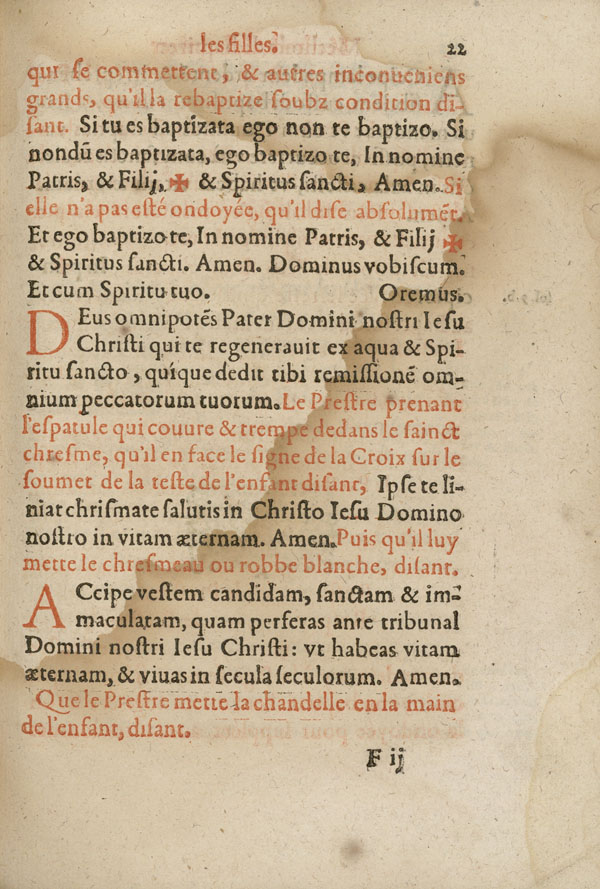 les filles. 22
qui ſe commettent, & autres inconueniens
grands, qu'il la rebaptize ſoubz condition di-
ſant. Si tu es baptizata ego non te baptizo. Si
nondũ es baptizata, ego baptizo te, In nomine
Patris, & Filij, ✠ & Spiritus ſancti, Amen. Si
elle n'a pas eſté ondoyée, qu'il diſe abſolumẽt.
Et ego baptizo te, In nomine Patris, & Filij ✠
& Spiritus ſancti. Amen. Dominus vobiſcum.
Et cum Spiritu tuo. Oremus.
DEus omnipotẽs Pater Domini noſtri Ieſu
Chriſti qui te regenerauit ex aqua & Spi-
ritu ſancto, quique dedit tibi remiſſionẽ om-
nium peccatorum tuorum. Le Preſtre prenant
l'eſpatule qui couure & trempe dedans le ſainct
chreſme, qu'il en face le ſigne de la Croix ſur le
ſoumet de la teſte de l'enfant diſant, Ipſe te li-
niat chriſmate ſalutis in Chriſto Ieſu Domino
noſtro in vitam æternam. Amen. Puis qu'il luy
mette le chreſmeau ou robbe blanche, diſant.
ACcipe veſtem candidam, ſanctam & im-
maculatam, quam perferas ante tribunal
Domini noſtri Ieſu Chriſti: vt habeas vitam
æternam, & viuas in ſecula ſeculorum. Amen.
Que le Preſtre mette la chandelle en la main
de l'enfant, diſant.
F ij